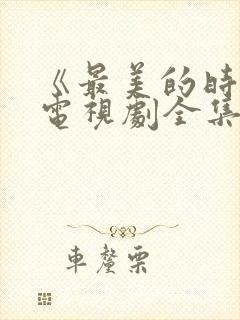 《最美的時
電視劇全集
車釐栗